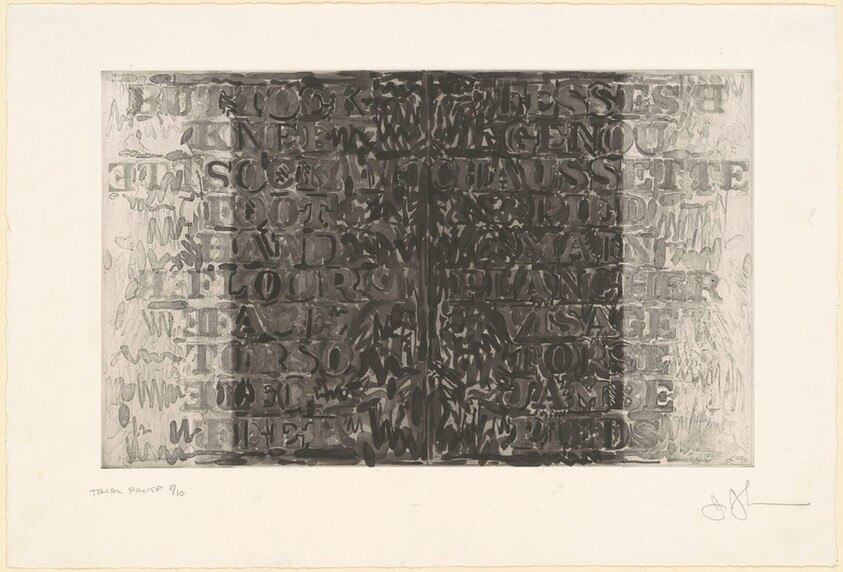 BUTTOCK FESSES
KNEE GENOU
SOCK CHAUSSETTE
FOOT PIED
HAND MAIN
FLOOR PLANCHER
FACE VISAGE
TORSO TORSE
LEG JAMBE
FEET PIEDS
TRIAL PROOF